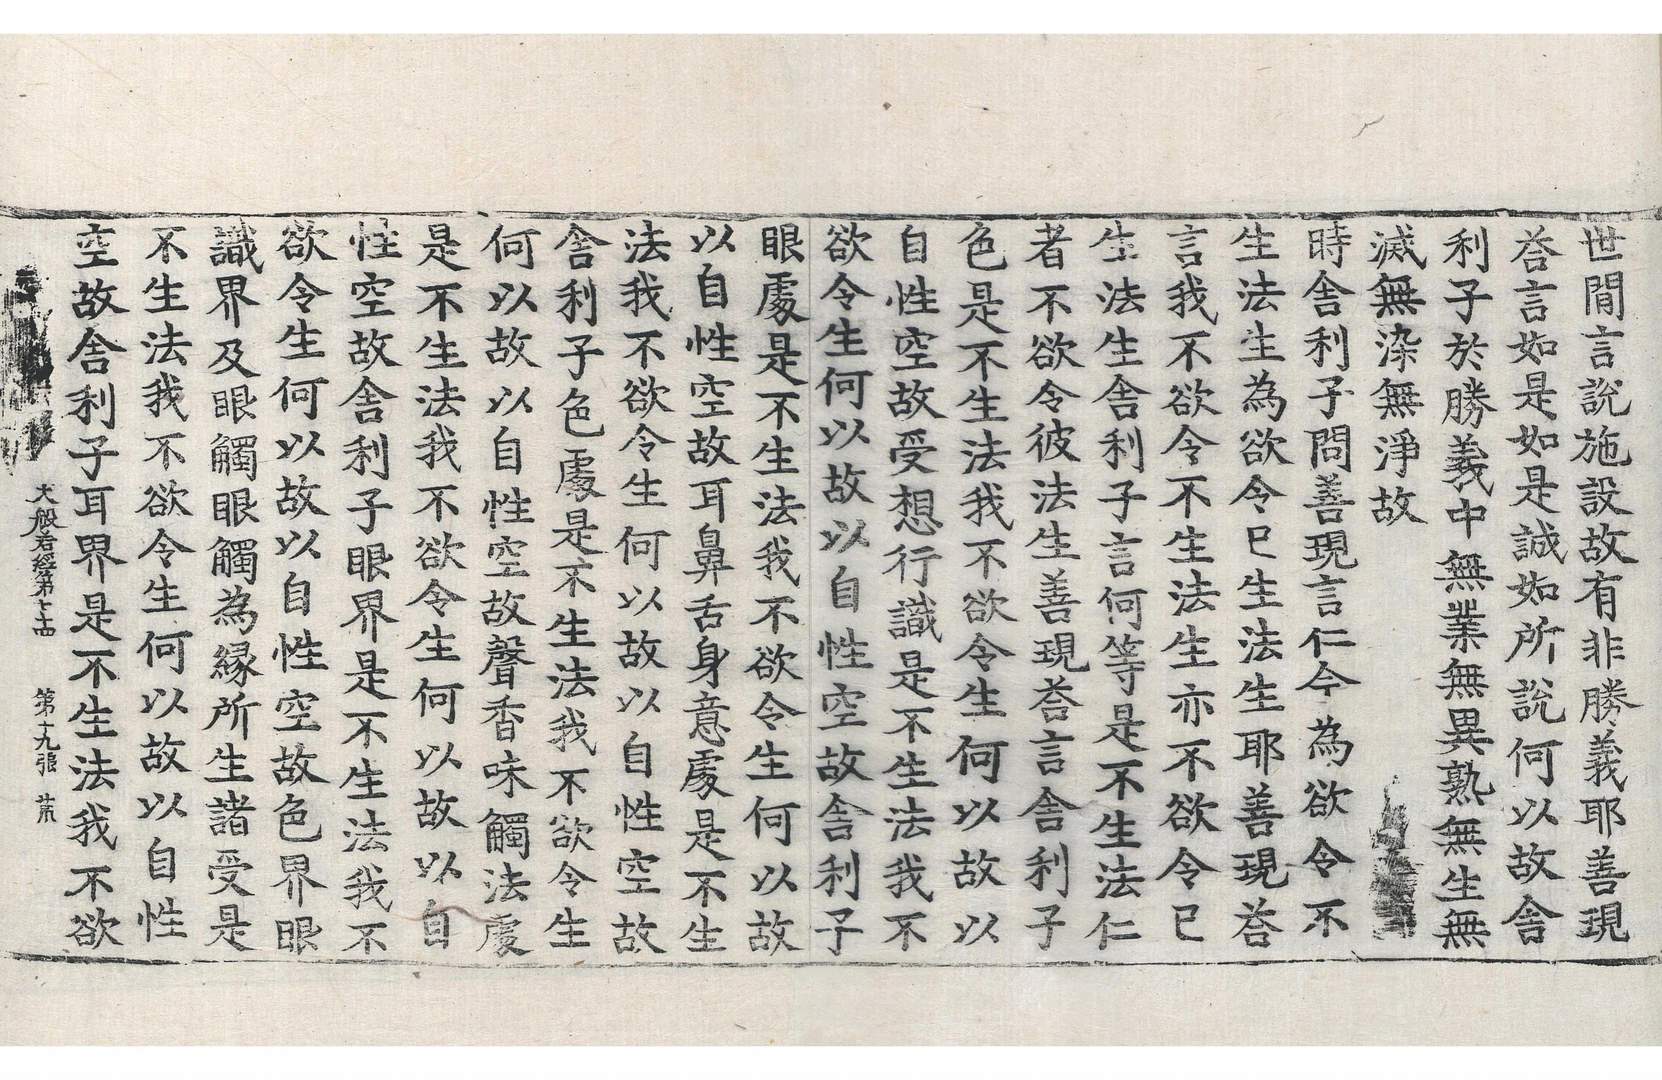 世間言說施設故有非勝義耶善現
荅言如是如是誠如所說何以故舍
利子於勝義中無業無異熟無生無
滅無染無淨故
時舍利子問善現言仁今為欲令不
生法生為欲令已生法生耶善現荅
言我不欲令不生法生亦不欲令已
生法生舍利子言何等是不生法仁
者不欲令彼法生善現荅言舍利子
色是不生法我不欲令生何以故以
自性空故受想行識是不生法我不
欲令生何以故以自性空故舍利子
眼處是不生法我不欲令生何以故
以自性空故耳鼻舌身意處是不生
法我不欲令生何以故以自性空故
舍利子色處是不生法我不欲令生
何以故以自性空故聲香味觸法處
是不生法我不欲令生何以故以自
性空故舍利子眼界是不生法我不
欲令生何以故以自性空故色界眼
識界及眼觸眼觸為緣所生諸受是
不生法我不欲令生何以故以自性
空故舍利子耳界是不生法我不欲
大般若經第七十四 第十九張 荒